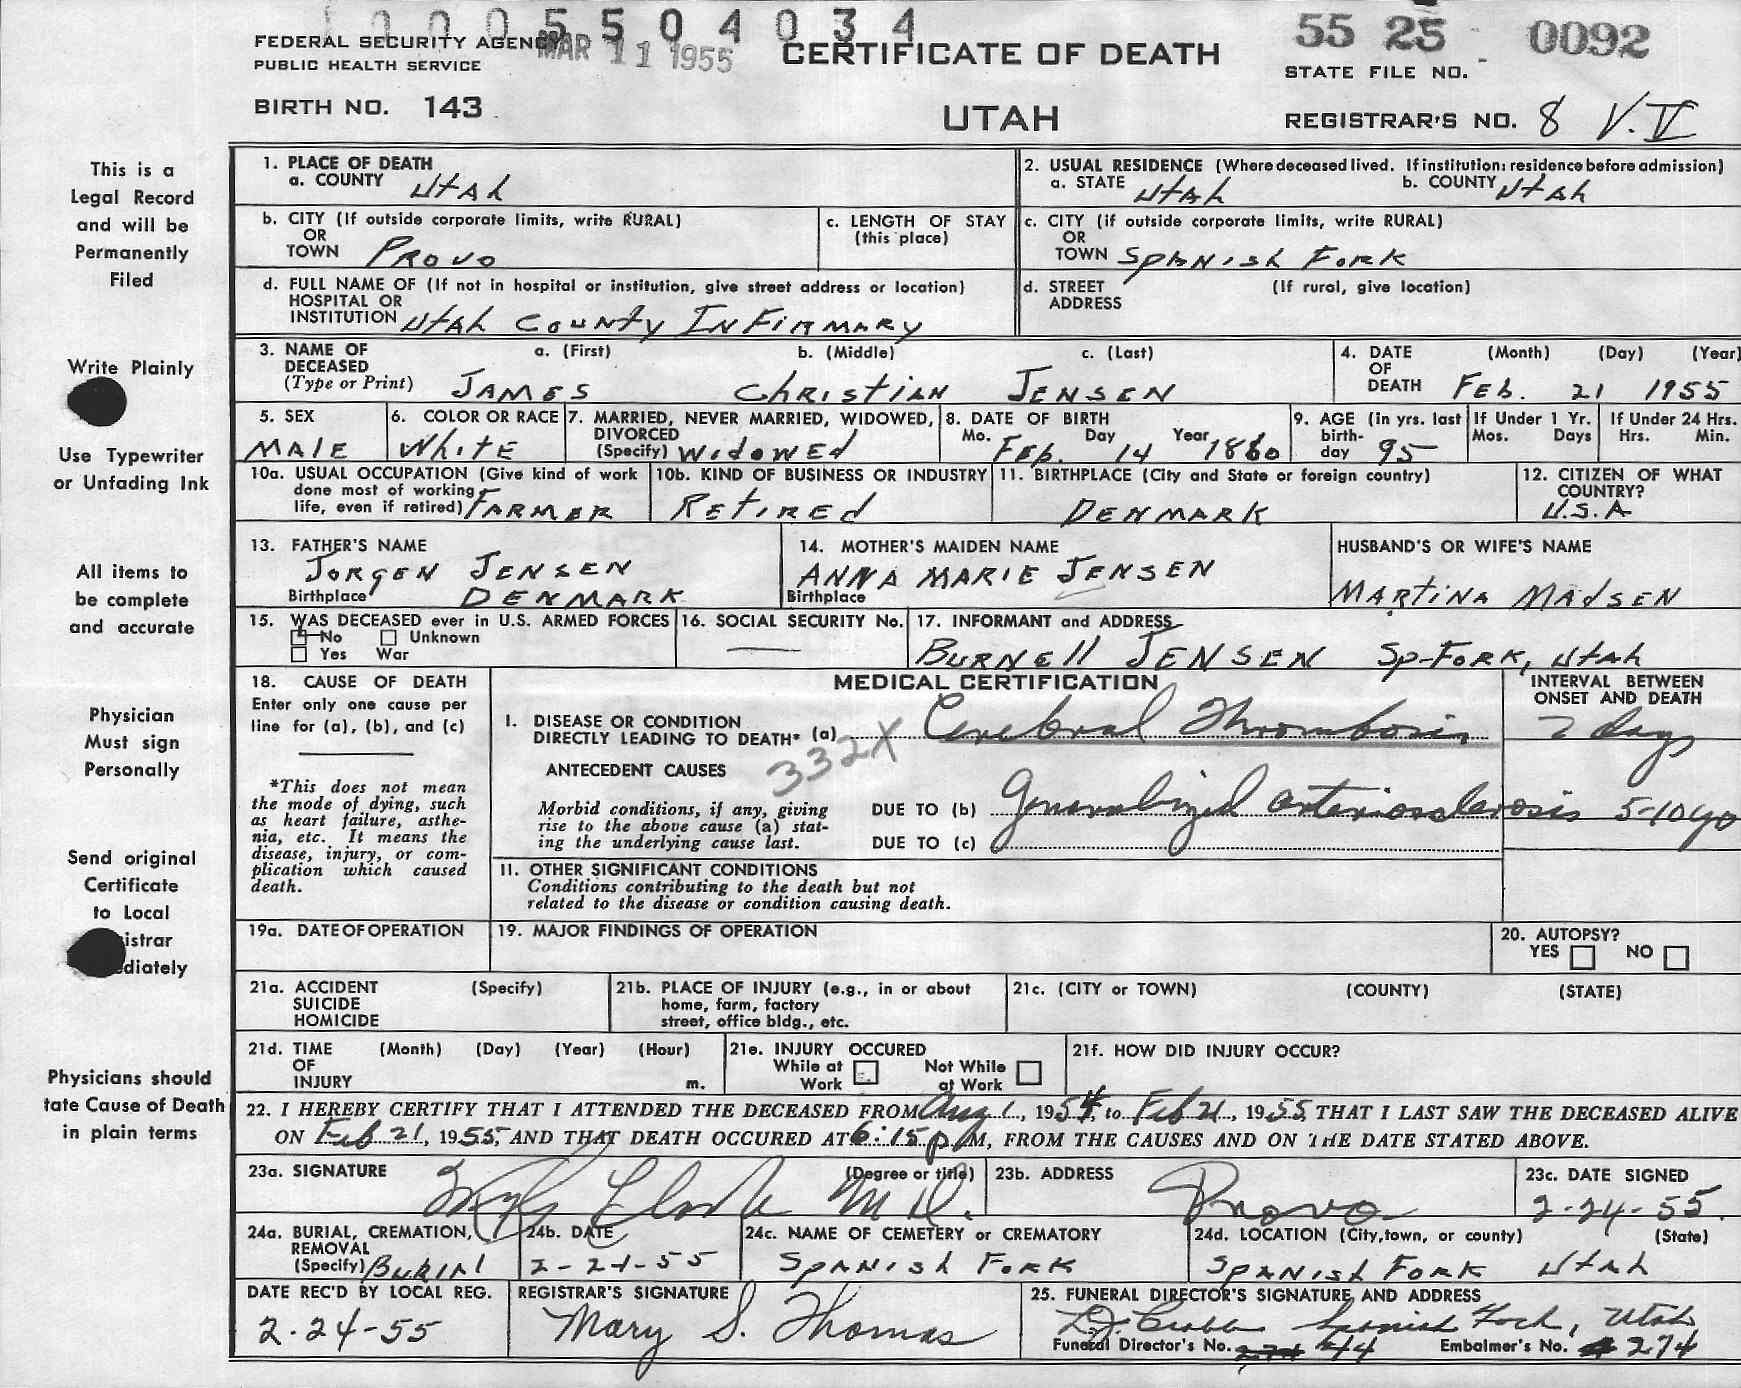 0005504034
55 25 0092
FEDERAL SECURITY AGENCY MAR 11 1955 CERTIFICATE OF DEATH
PUBLIC HEALTH SERVICE STATE FILE NO.
BIRTH NO. 143 UTAH REGISTRAR'S NO. 8 V.V
This is a
Legal Record
and will be
Permanently
Filed
Write Plainly
Use Typewriter
or Unfading Ink
All items to
be complete
and accurate
Physician
Must sign
Personally
Send original
Certificate
to Local
istrar
diately
Physicians should
tate Cause of Death
in plain terms
1. PLACE OF DEATH
a. COUNTY Utah
2. USUAL RESIDENCE (Where deceased lived. If institution: residence before admission)
a. STATE Utah b. COUNTY Utah
b. CITY (If outside corporate limits, write RURAL)
OR
TOWN Provo
c. LENGTH OF STAY
(this place)
c. CITY (if outside corporate limits, write RURAL)
OR
TOWN Spanish Fork
d. FULL NAME OF (If not in hospital or institution, give street address or location)
HOSPITAL OR
INSTITUTION Utah County Infirmary
d. STREET (If rural, give location)
ADDRESS
3. NAME OF a. (First) b. (Middle) c. (Last)
DECEASED
(Type or Print) James Christian Jensen
4. DATE (Month) (Day) (Year)
OF
DEATH Feb. 21 1955
5. SEX
Male
6. COLOR OR RACE
White
7. MARRIED, NEVER MARRIED, WIDOWED,
DIVORCED
(Specify) Widowed
8. DATE OF BIRTH
Mo. Day Year
Feb. 14 1860
9. AGE (in yrs. last
birth-
day 95
If Under 1 Yr.
Mos. Days
If Under 24 Hrs.
Hrs. Min.
10a. USUAL OCCUPATION (Give kind of work
done most of working
life, even if retired) Farmer
10b. KIND OF BUSINESS OR INDUSTRY
Retired
11. BIRTHPLACE (City and State or foreign country)
Denmark
12. CITIZEN OF WHAT
COUNTRY?
U.S.A
13. FATHER'S NAME
Jorgen Jensen
Birthplace Denmark
14. MOTHER'S MAIDEN NAME
Anna Marie Jensen
Birthplace
HUSBAND'S OR WIFE'S NAME
Martina Madsen
15. WAS DECEASED ever in U.S. ARMED FORCES
No Unknown
Yes War
16. SOCIAL SECURITY No.
17. INFORMANT and ADDRESS
Burnell Jensen Sp-Fork, Utah
18. CAUSE OF DEATH
Enter only one cause per
line for (a), (b), and (c)
*This does not mean
the mode of dying, such
as heart failure, asthe-
nia, etc. It means the
disease, injury, or com-
plication which caused
death.
MEDICAL CERTIFICATION
INTERVAL BETWEEN
ONSET AND DEATH
I. DISEASE OR CONDITION
DIRECTLY LEADING TO DEATH* (a) Cerebral Thrombosis 2 days
332X
ANTECEDENT CAUSES
Morbid conditions, if any, giving
rise to the above cause (a) stat-
ing the underlying cause last.
DUE TO (b) Generalized arteriosclerosis 5-10 yo
DUE TO (c)
11. OTHER SIGNIFICANT CONDITIONS
Conditions contributing to the death but not
related to the disease or condition causing death.
19a. DATE OF OPERATION
19. MAJOR FINDINGS OF OPERATION
20. AUTOPSY?
YES NO
21a. ACCIDENT (Specify)
SUICIDE
HOMICIDE
21b. PLACE OF INJURY (e.g., in or about
home, farm, factory
street, office bldg., etc.
21c. (CITY or TOWN) (COUNTY) (STATE)
21d. TIME (Month) (Day) (Year) (Hour)
OF
INJURY m.
21e. INJURY OCCURED
While at Not While
Work at Work
21f. HOW DID INJURY OCCUR?
22. I HEREBY CERTIFY THAT I ATTENDED THE DECEASED FROM Aug 1, 1954, to Feb 21, 1955 THAT I LAST SAW THE DECEASED ALIVE
ON Feb 21, 1955, AND THAT DEATH OCCURED AT 6:15 p M, FROM THE CAUSES AND ON THE DATE STATED ABOVE.
23a. SIGNATURE (Degree or title)
Clark M.D.
23b. ADDRESS
Provo
23c. DATE SIGNED
2-24-55.
24a. BURIAL, CREMATION,
REMOVAL
(Specify) Burial
24b. DATE
2-24-55
24c. NAME OF CEMETERY or CREMATORY
Spanish Fork
24d. LOCATION (City, town, or county) (State)
Spanish Fork Utah
DATE REC'D BY LOCAL REG.
2-24-55
REGISTRAR'S SIGNATURE
Mary S. Thomas
25. FUNERAL DIRECTOR'S SIGNATURE AND ADDRESS
Spanish Fork, Utah
Funeral Director's No. 44 Embalmer's No. 274